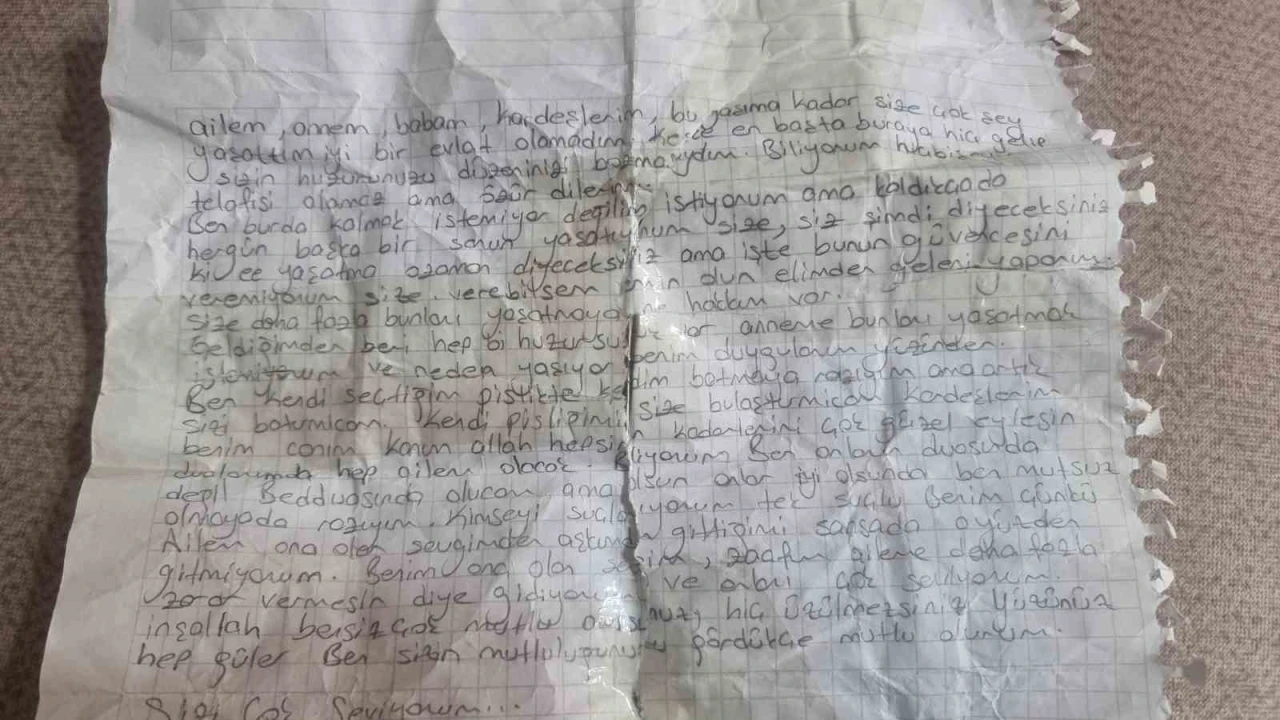 ailem, annem, babam, kardeşlerim, bu yaşıma kadar size çok şey
yaşattım iyi bir evlat olamadım, keşke en başta buraya hiç gelse
sizin huzurunuzu düzeninizi bozmasaydım. Biliyorum hiçbi
telafisi olamaz ama özür dilerim
Ben burda kalmak istemiyor değilim istiyorum ama kaldıkçada
hergün başka bir sorun yaşatıyorum size, siz şimdi diyeceksiniz
ki ee yaşatma ozaman diyeceksiniz ama işte bunun güvencesini
veremiyorum size. verebilsem inan dun elimden geleni yaparım.
Size daha fazla bunları yaşatmaya hakkım var.
Geldiğimden beri hep bi huzursuz anneme bunları yaşatmak
istemiyorum ve neden yaşıyor benim duygularım yüzünden.
Ben kendi seçtiğim pislikte batmaya razıyım ama artık
sizi batırmıcam. Kendi pisliğimi size bulaştırmıcam kardeşlerim
benim canım kanım allah hepsinin kaderlerini çok güzel eylesin
dualarımda hep ailem olacak. Biliyorum Ben onların duasında
değil Bedduasında olucam ama olsun onlar iyi olsunda ben mutsuz
olmayada razıyım. Kimseyi suçlamıyorum tek suçlu Benim Çünkü
Ailem ona olan sevgimden aşkımdan gittiğimi sansada oyüzden
gitmiyorum. Benim ona olan zaafım aileme daha fazla
zarar vermesin diye gidiyorum ve onları çok seviyorum.
inşallah bensiz çok mutlu olursunuz, hiç üzülmezsiniz Yüzünüz
hep güler Ben sizin mutluluğunuzu gördükçe mutlu olurum.
Sizi Çok Seviyorum...